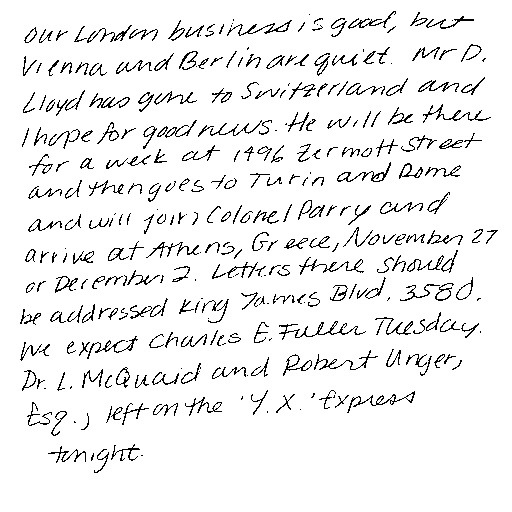 our London business is good, but
Vienna and Berlin are quiet. Mr D.
Lloyd has gone to Switzerland and
I hope for good news. He will be there
for a week at 1496 Zermott Street
and then goes to Turin and Rome
and will join Colonel Parry and
arrive at Athens, Greece, November 27
or December 2. Letters there should
be addressed King James Blvd. 3580.
We expect Charles E. Fuller Tuesday.
Dr. L. McQuaid and Robert Unger,
Esq., left on the 'Y. X.' Express
tonight.